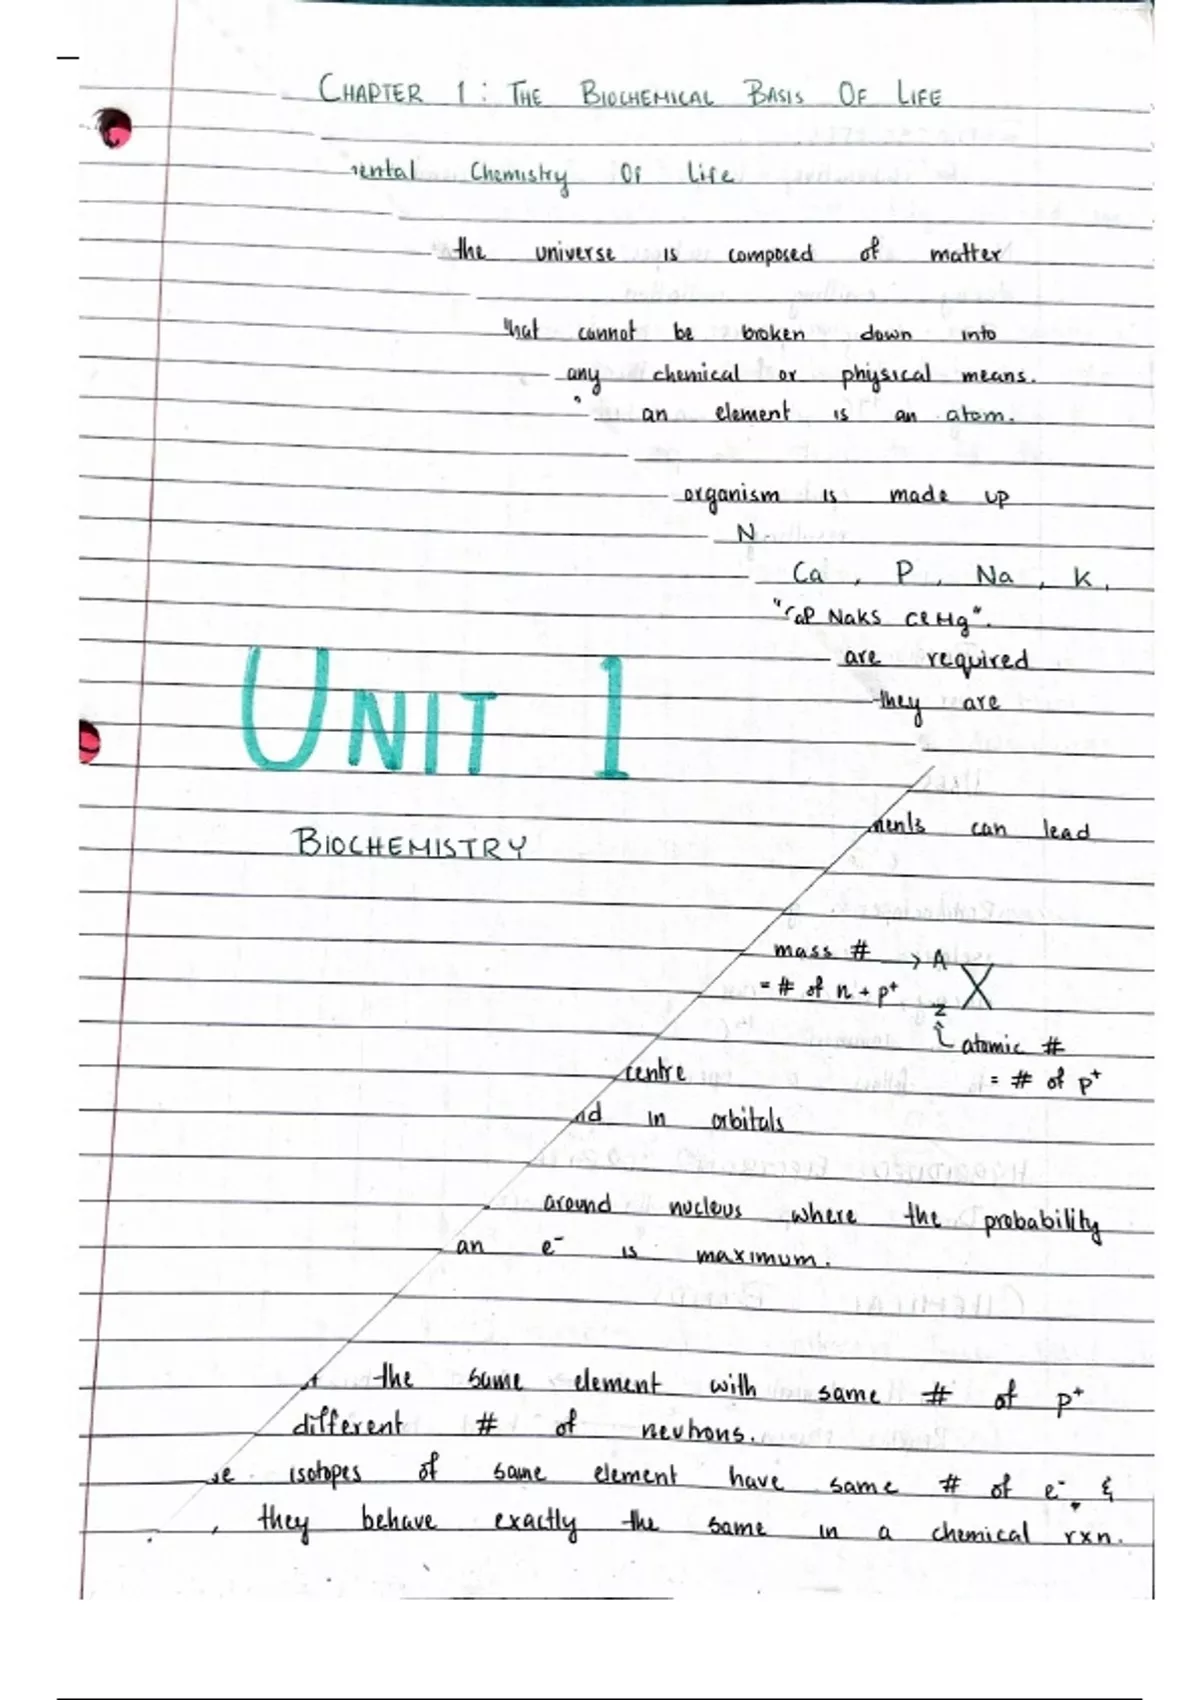 CHAPTER 1: THE BIOCHEMICAL BASIS OF LIFE
ental Chemistry Of Life
the universe is composed of matter
that cannot be broken down into
any chemical or physical means.
an element is an atom.
organism is made up
N
Ca, P, Na, K,
"CaP NaKS ClMg".
are required
they are
UNIT 1
BIOCHEMISTRY
ments can lead
mass # → A X
= # of n + p⁺
Z
atomic #
= # of p⁺
centre
nd in orbitals
around nucleus where the probability
an e⁻ is maximum.
the same element with same # of p⁺
different # of neutrons.
isotopes of same element have same # of e⁻ &
, they behave exactly the same in a chemical rxn.